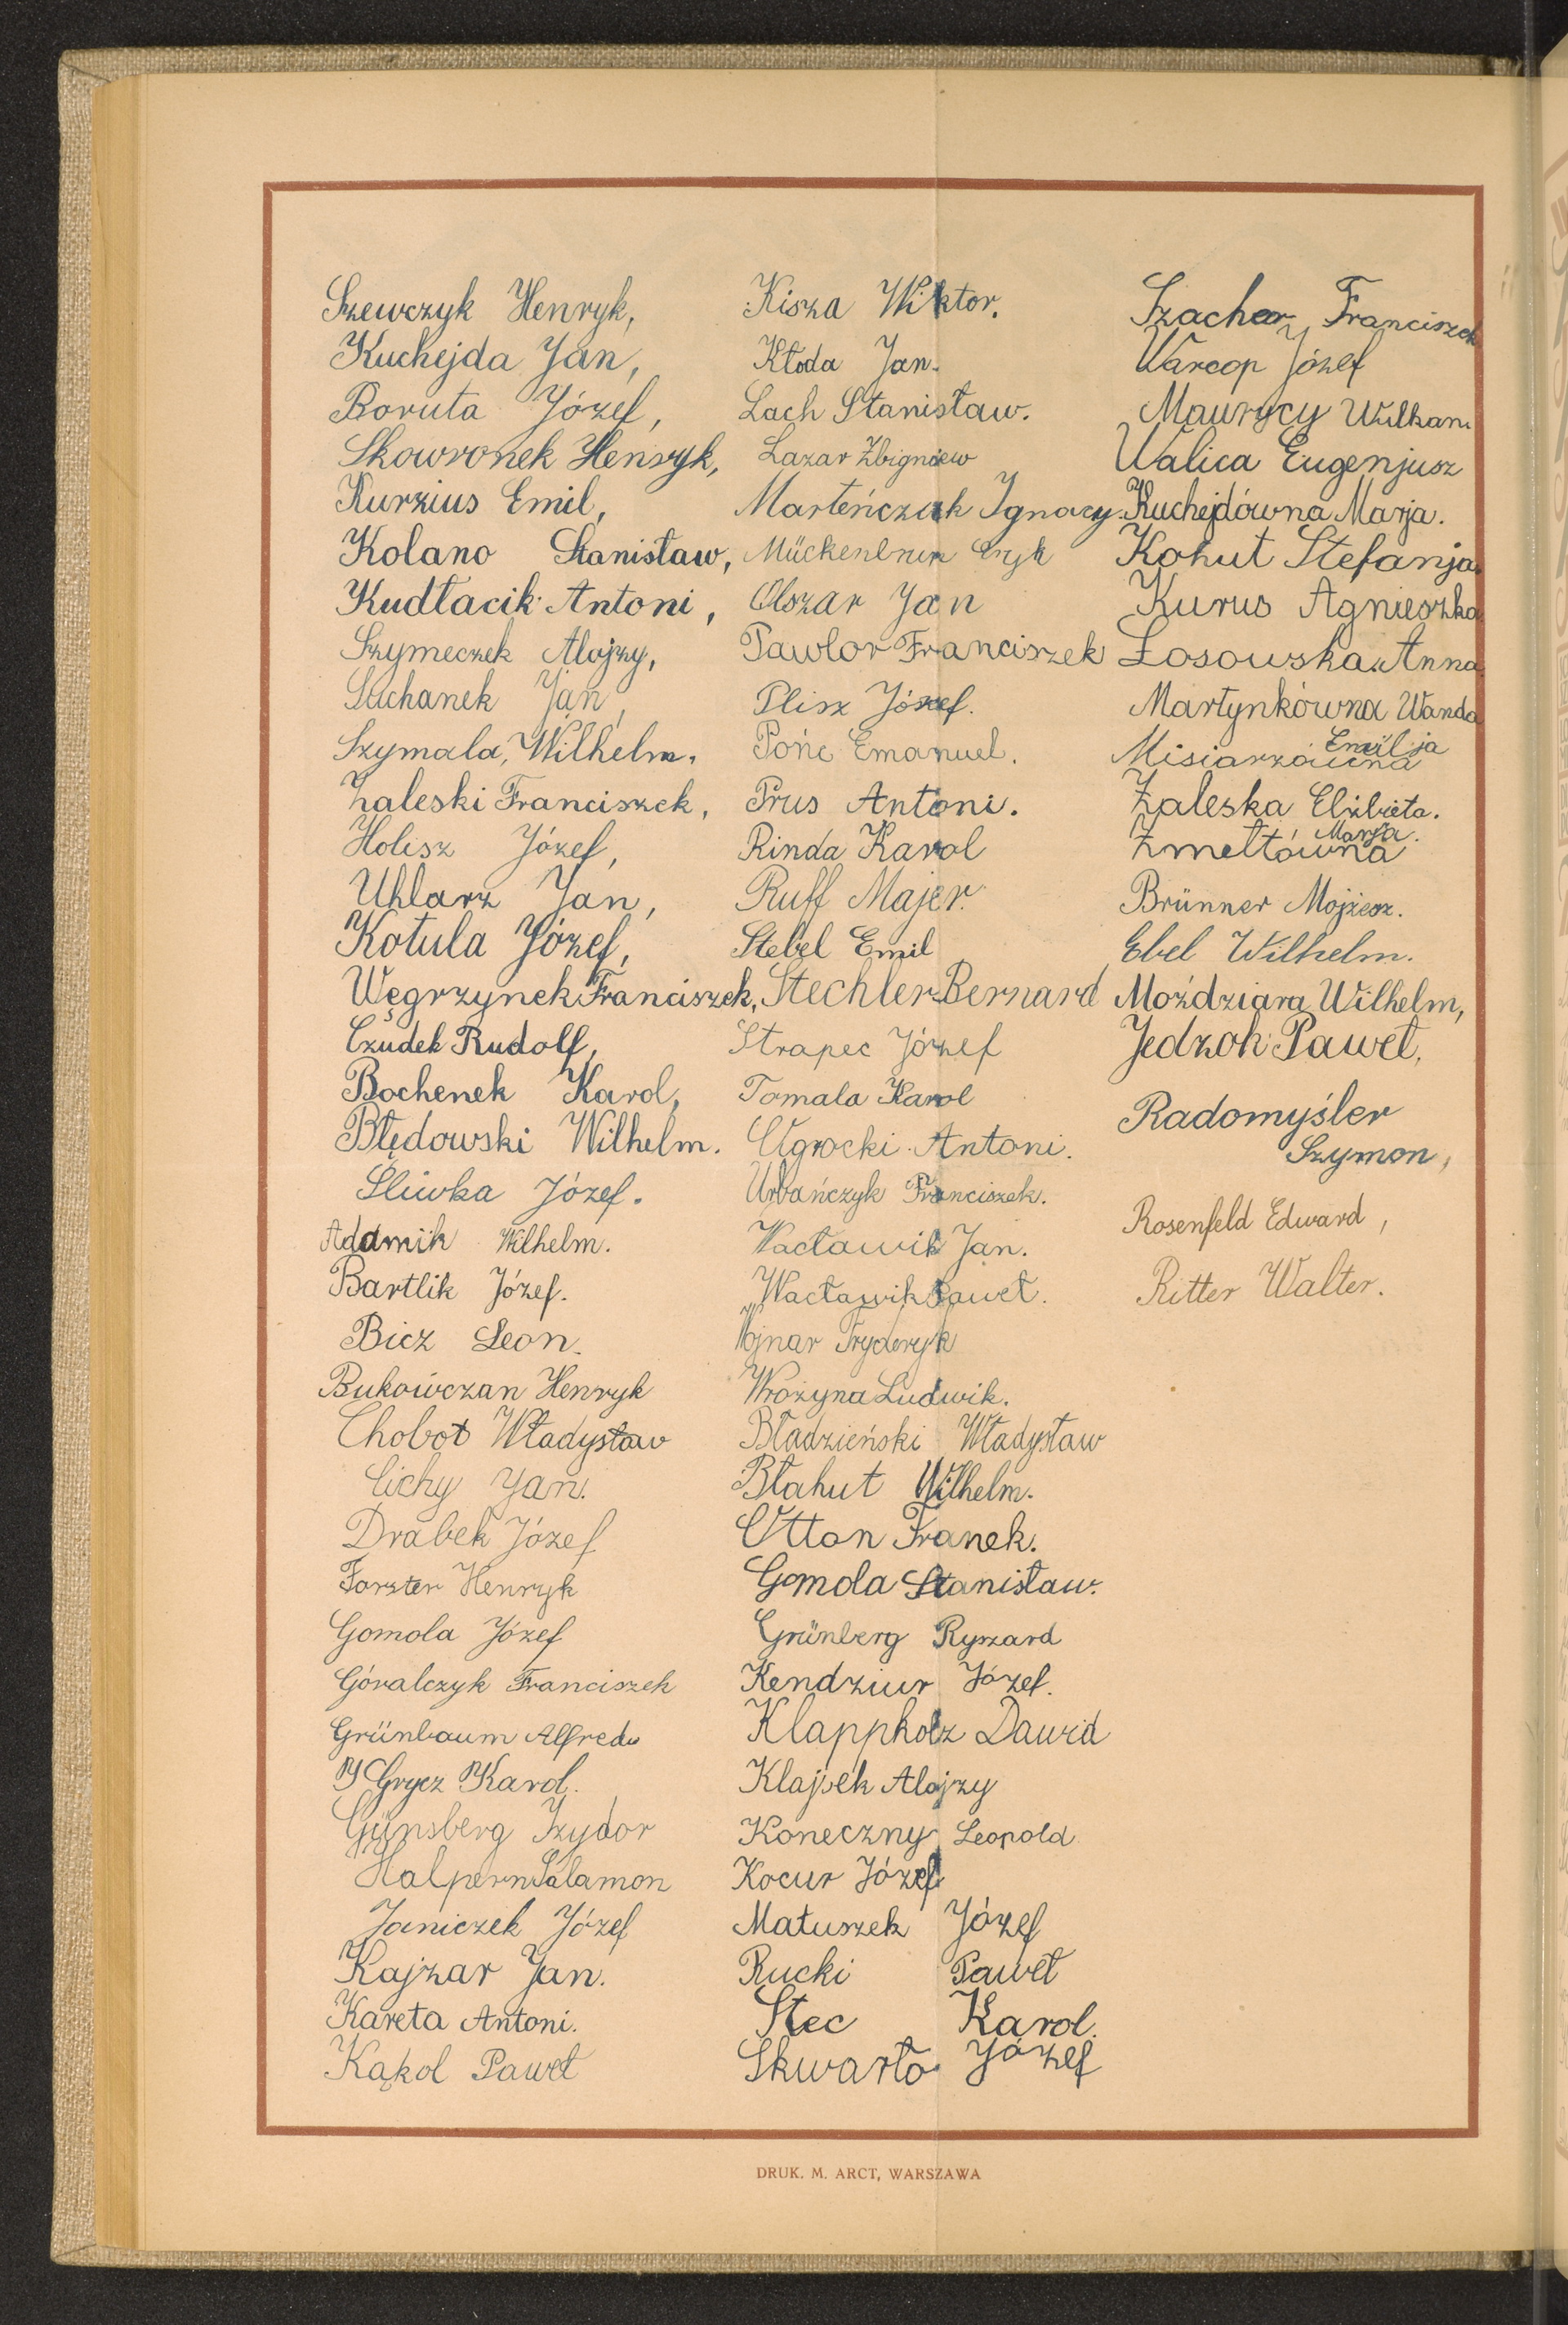 Szewczyk Henryk,
Kuchejda Jan,
Boruta Józef,
Skowronek Henryk,
Kurzius Emil,
Kolano Stanisław,
Kudłacik Antoni,
Szymeczek Alojzy,
Suchanek Jan,
Szymala, Wilhelm.
Zaleski Franciszek,
Holisz Józef,
Uhlarz Jan,
Kotula Józef,
Węgrzynek Franciszek,
Czudek Rudolf,
Bochenek Karol,
Błędowski Wilhelm.
Śliwka Józef.
Adamik Wilhelm.
Bartlik Józef.
Bicz Leon.
Bukowczan Henryk
Chobot Władysław
Cichy Jan.
Drabek Józef
Forster Henryk
Gomola Józef
Góralczyk Franciszek
Grünbaum Alfred
Grycz Karol.
Günsberg Izydor
Halpern Salamon
Janiczek Józef
Kajzar Jan.
Kareta Antoni.
Kąkol Paweł
Kisza Wiktor.
Kłoda Jan.
Lach Stanisław.
Lazar Zbigniew
Marteńczuk Ignacy.
Eryk
Olszar Jan
Pawlor Franciszek
Plisz Józef.
Pońc Emanuel.
Prus Antoni.
Rinda Karol
Ruff Majer.
Stebel Emil
Stechler Bernard
Strapec Józef
Tomala Karol
Ugrocki Antoni.
Urbańczyk Franciszek.
Wacławik Jan.
Wacławik Paweł.
Wojnar Fryderyk
Wrożyna Ludwik.
Bładzieński Władysław
Błahut Wilhelm.
Otton Franek.
Gomola Stanisław.
Grünberg Ryszard
Kendziur Józef.
Klappholz Dawid
Klajsek Alojzy
Koneczny Leopold
Kocur Józef
Matuszek Józef
Rucki Paweł
Stec Karol.
Skwarło Józef
Szacher Franciszek
Warcop Józef
Maurycy Wulkan.
Walica Eugenjusz
Kuchejdówna Marja.
Kohut Stefanja.
Kurus Agnieszka
Łosowska Anna
Martynkówna Wanda
Emilja
Misiarzówna
Zaleska Elżbieta.
Marja.
Zmełtówna
Brünner Mojżesz.
Ebel Wilhelm.
Moździara Wilhelm,
Jedzok Paweł,
Radomyśler
Szymon,
Rosenfeld Edward,
Ritter Walter.
DRUK. M. ARCT, WARSZAWA